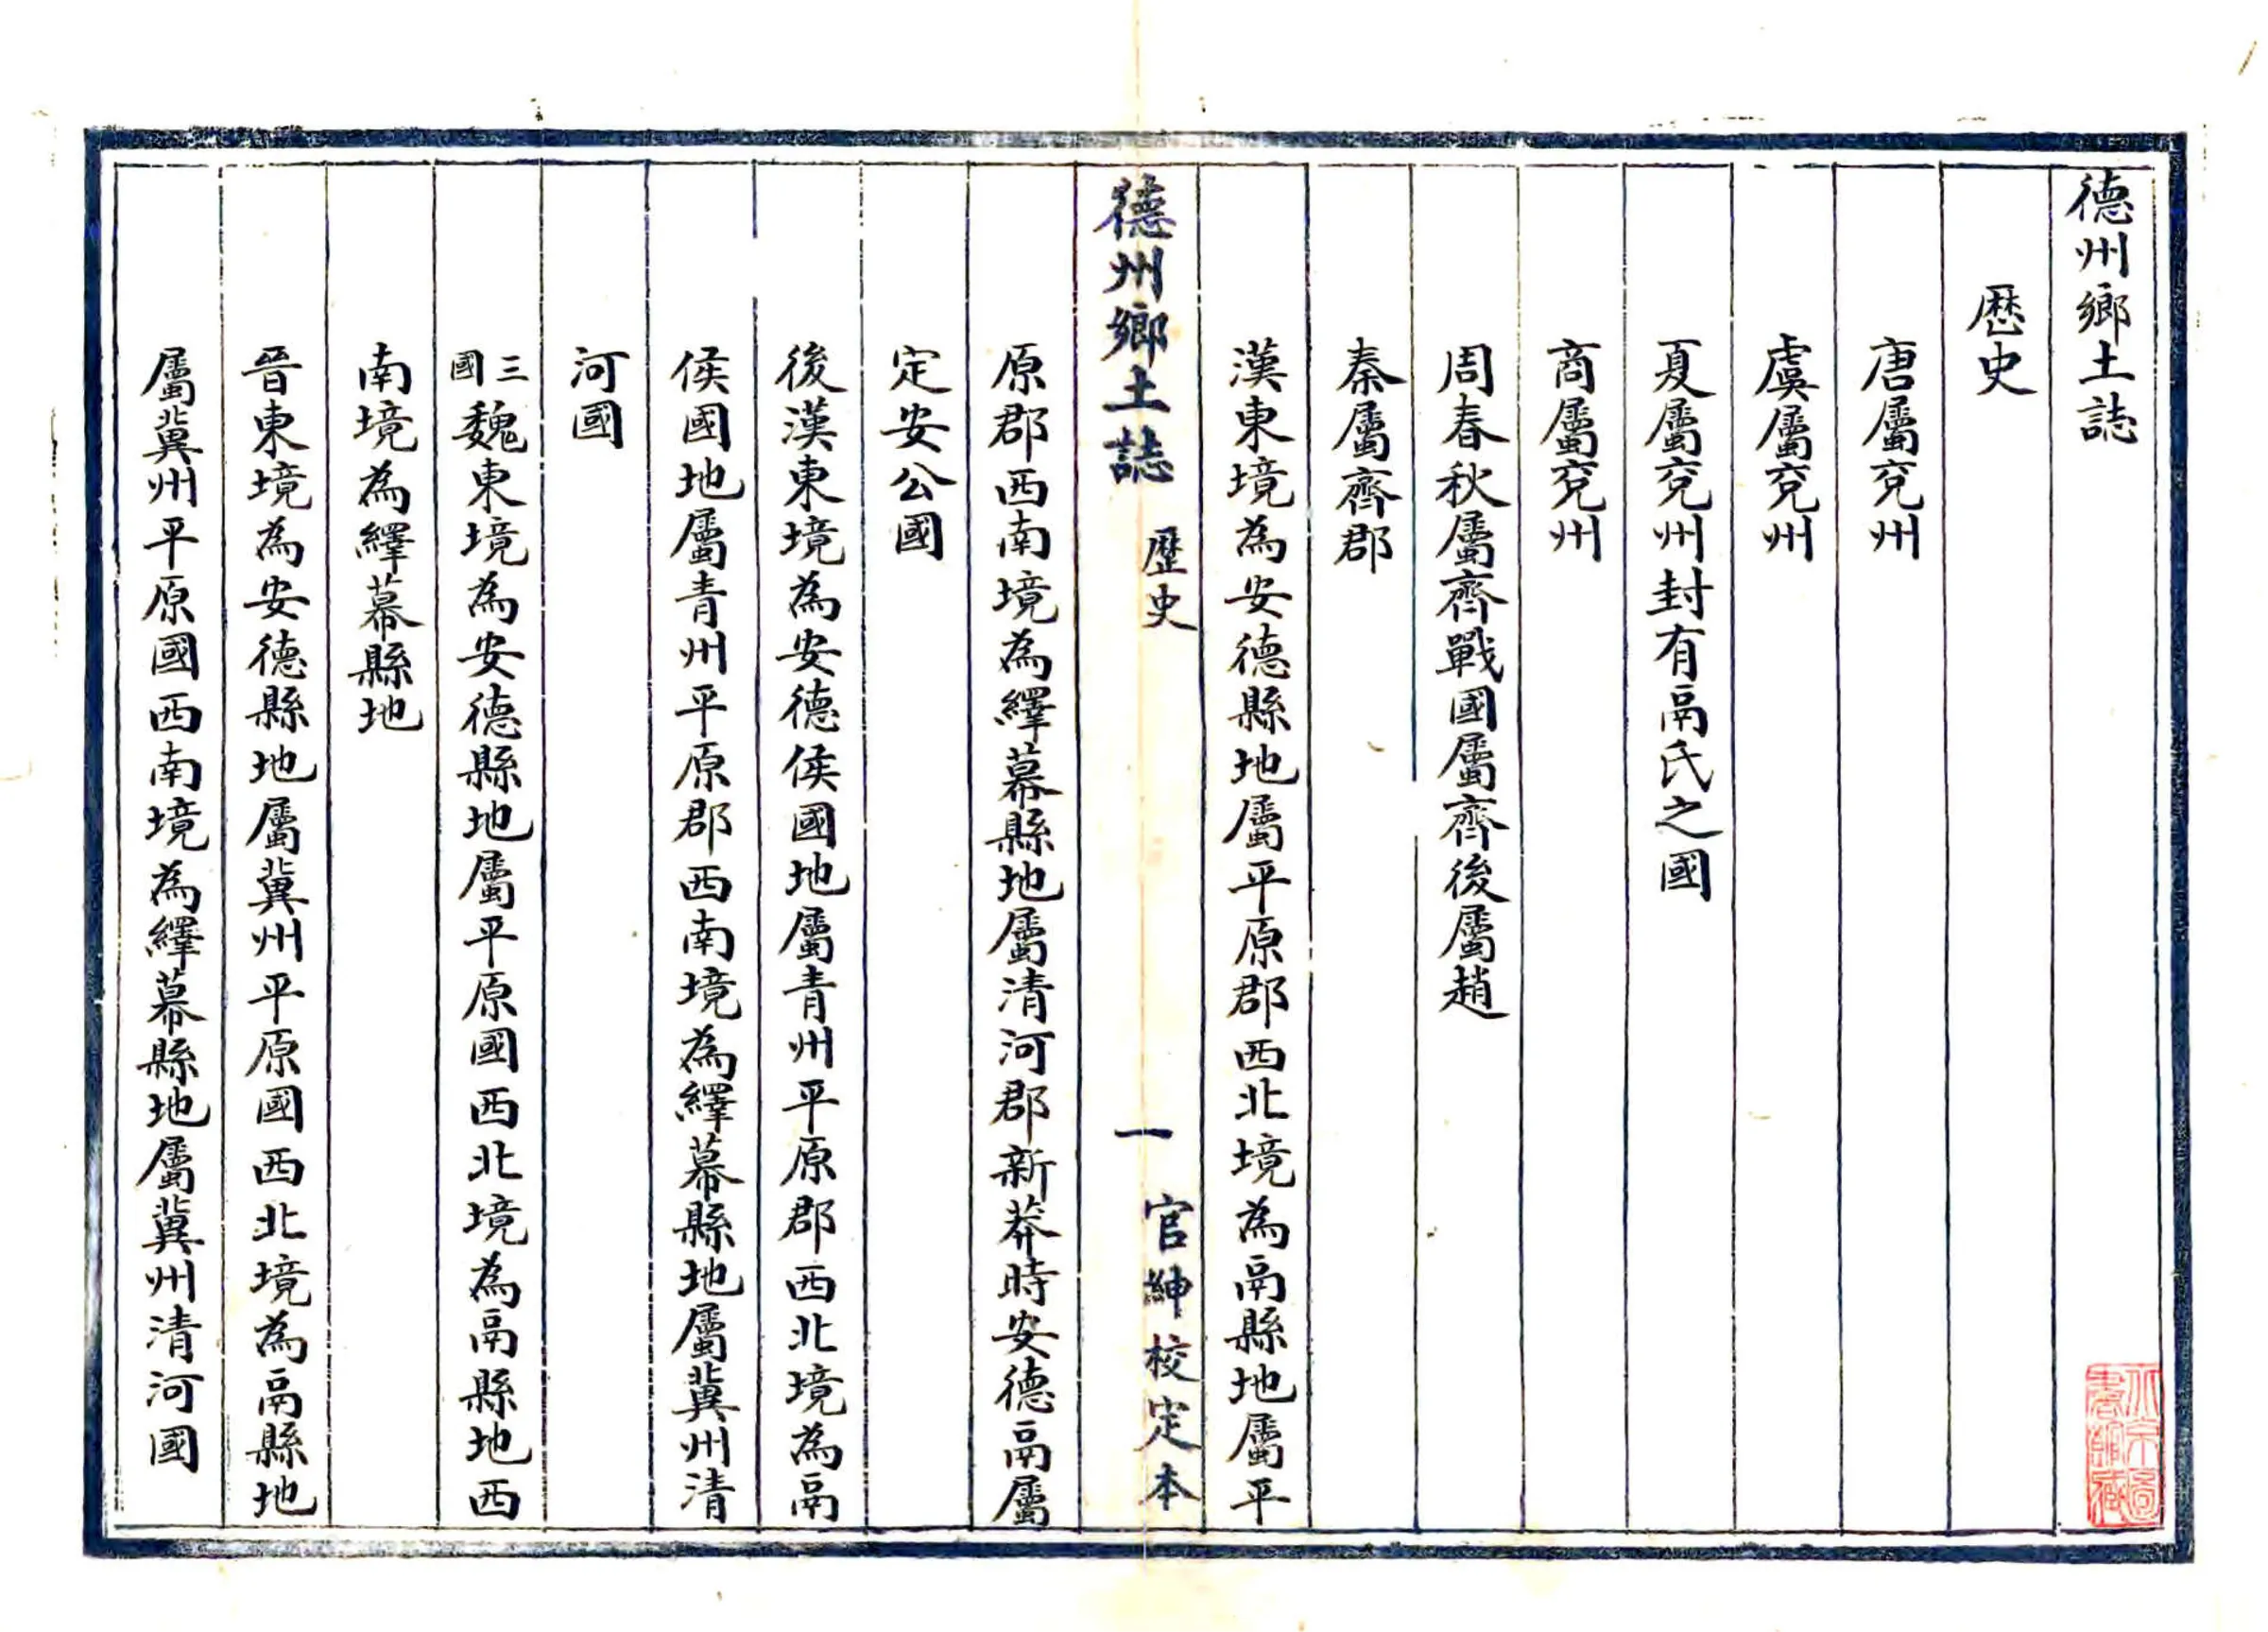 德州鄉土誌
歷史
唐屬兗州
虞屬兗州
夏屬兗州封有鬲氏之國
商屬兗州
周春秋屬齊戰國屬齊後屬趙
秦屬齊郡
漢東境為安德縣地屬平原郡西北境為鬲縣地屬平
德州鄉土誌 歷史 一 官紳校定本
原郡西南境為繹幕縣地屬清河郡新莽時安德鬲屬
定安公國
後漢東境為安德侯國地屬青州平原郡西北境為鬲
侯國地屬青州平原郡西南境為繹幕縣地屬冀州清
河國
三國魏東境為安德縣地屬平原國西北境為鬲縣地西
南境為繹幕縣地
晉東境為安德縣地屬冀州平原國西北境為鬲縣地
屬冀州平原國西南境為繹幕縣地屬冀州清河國